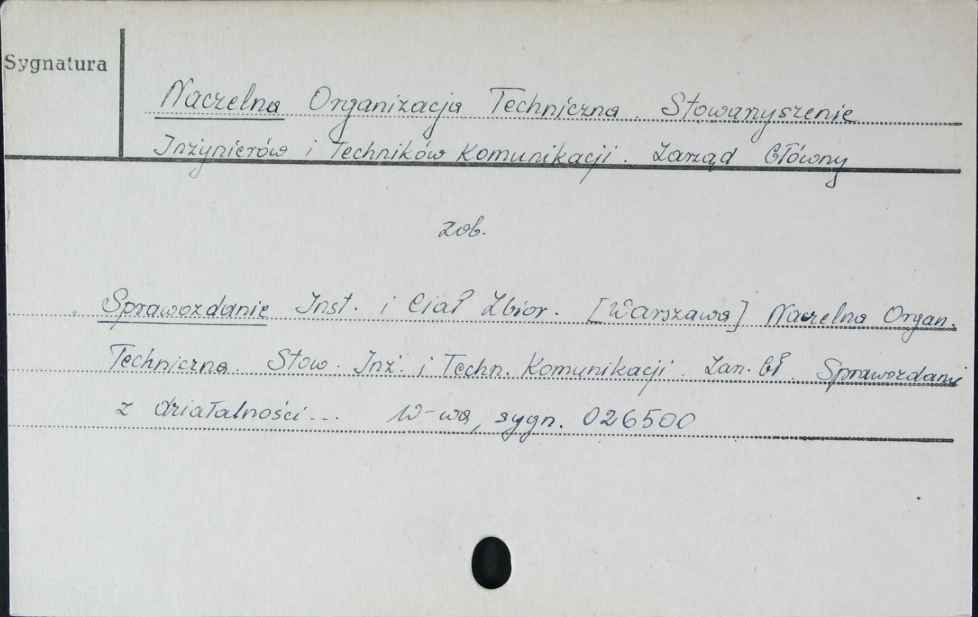 Sygnatura
Naczelna Organizacja Techniczna. Stowarzyszenie
Inżynierów i Techników Komunikacji. Zarząd Główny
zob.
Sprawozdanie Inst. i Ciał Zbior. [Warszawa] Naczelna Organ.
Techniczna. Stow. Inż. i Techn. Komunikacji. Zarz. Gł. Sprawozdanie
z działalności... W-wa, sygn. 026500